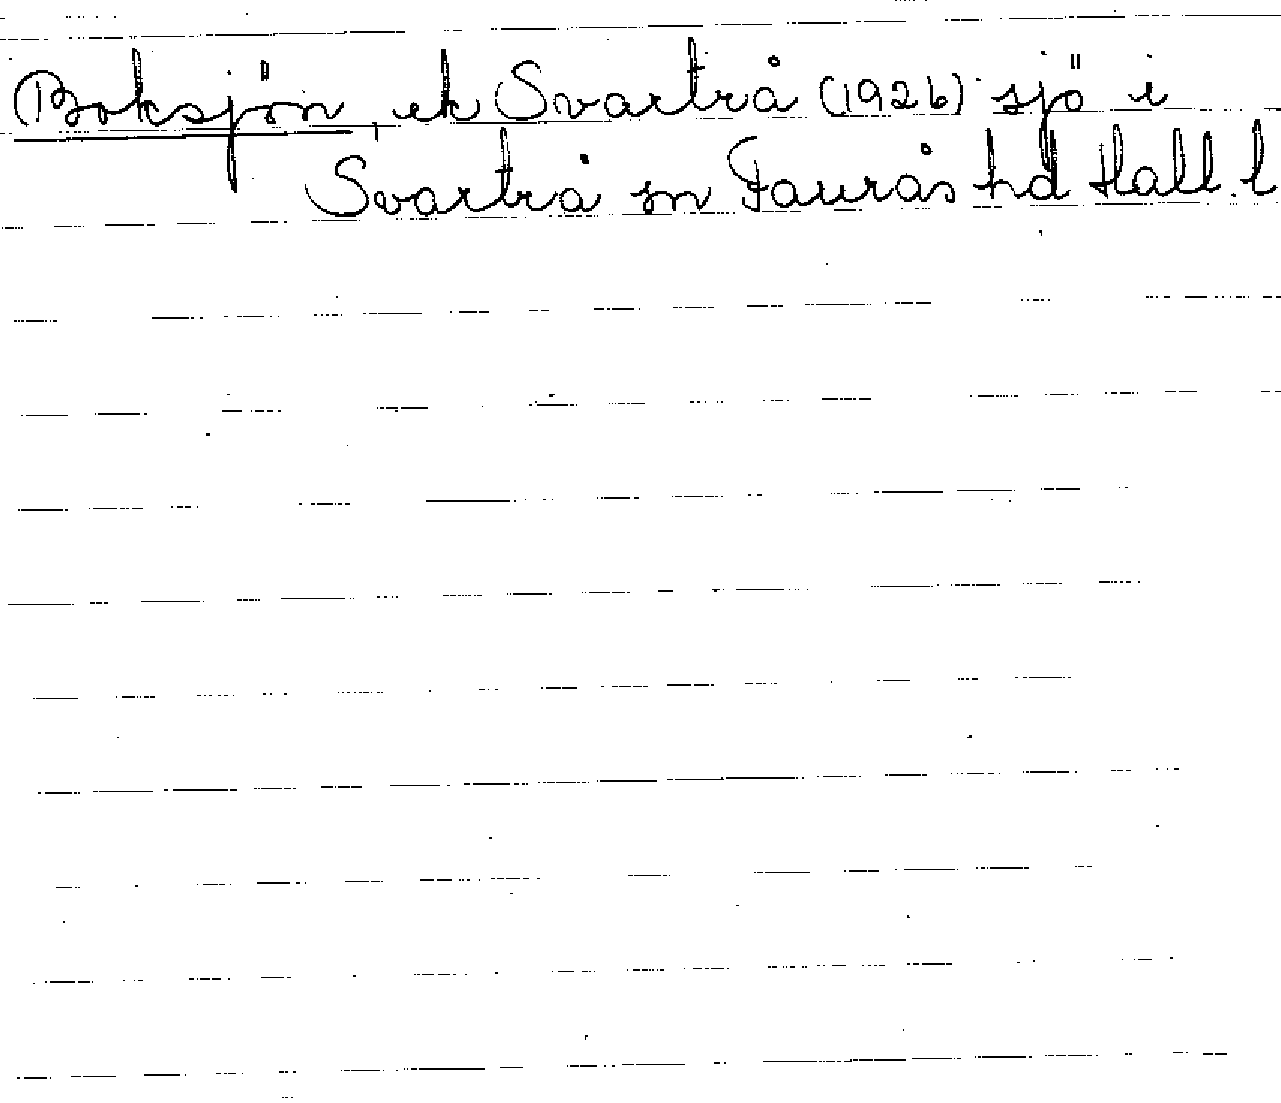 Boksjön, ek Svartrå (1926) sjö i
Svartrå sn Faurås hd Hall. l